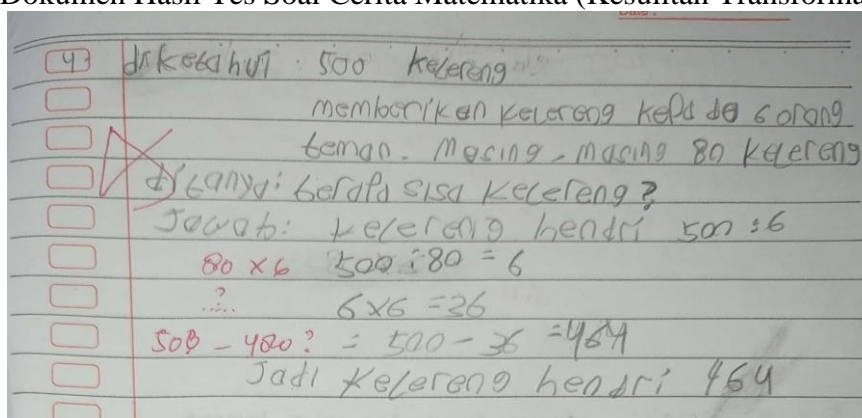 Dokumen Hasil Tes Soal Cerita Matematika (Kesulitan Transforma
4) diketahui : 500 kelereng
memberikan kelereng kepada 6 orang
teman. Masing-masing 80 kelereng
ditanya: berapa sisa kelereng?
Jawab: kelereng hendri 500 : 6
80 x 6 500 : 80 = 6
?..... 6x6 = 36
500 - 480? = 500 - 36 = 464
Jadi kelereng hendri 464